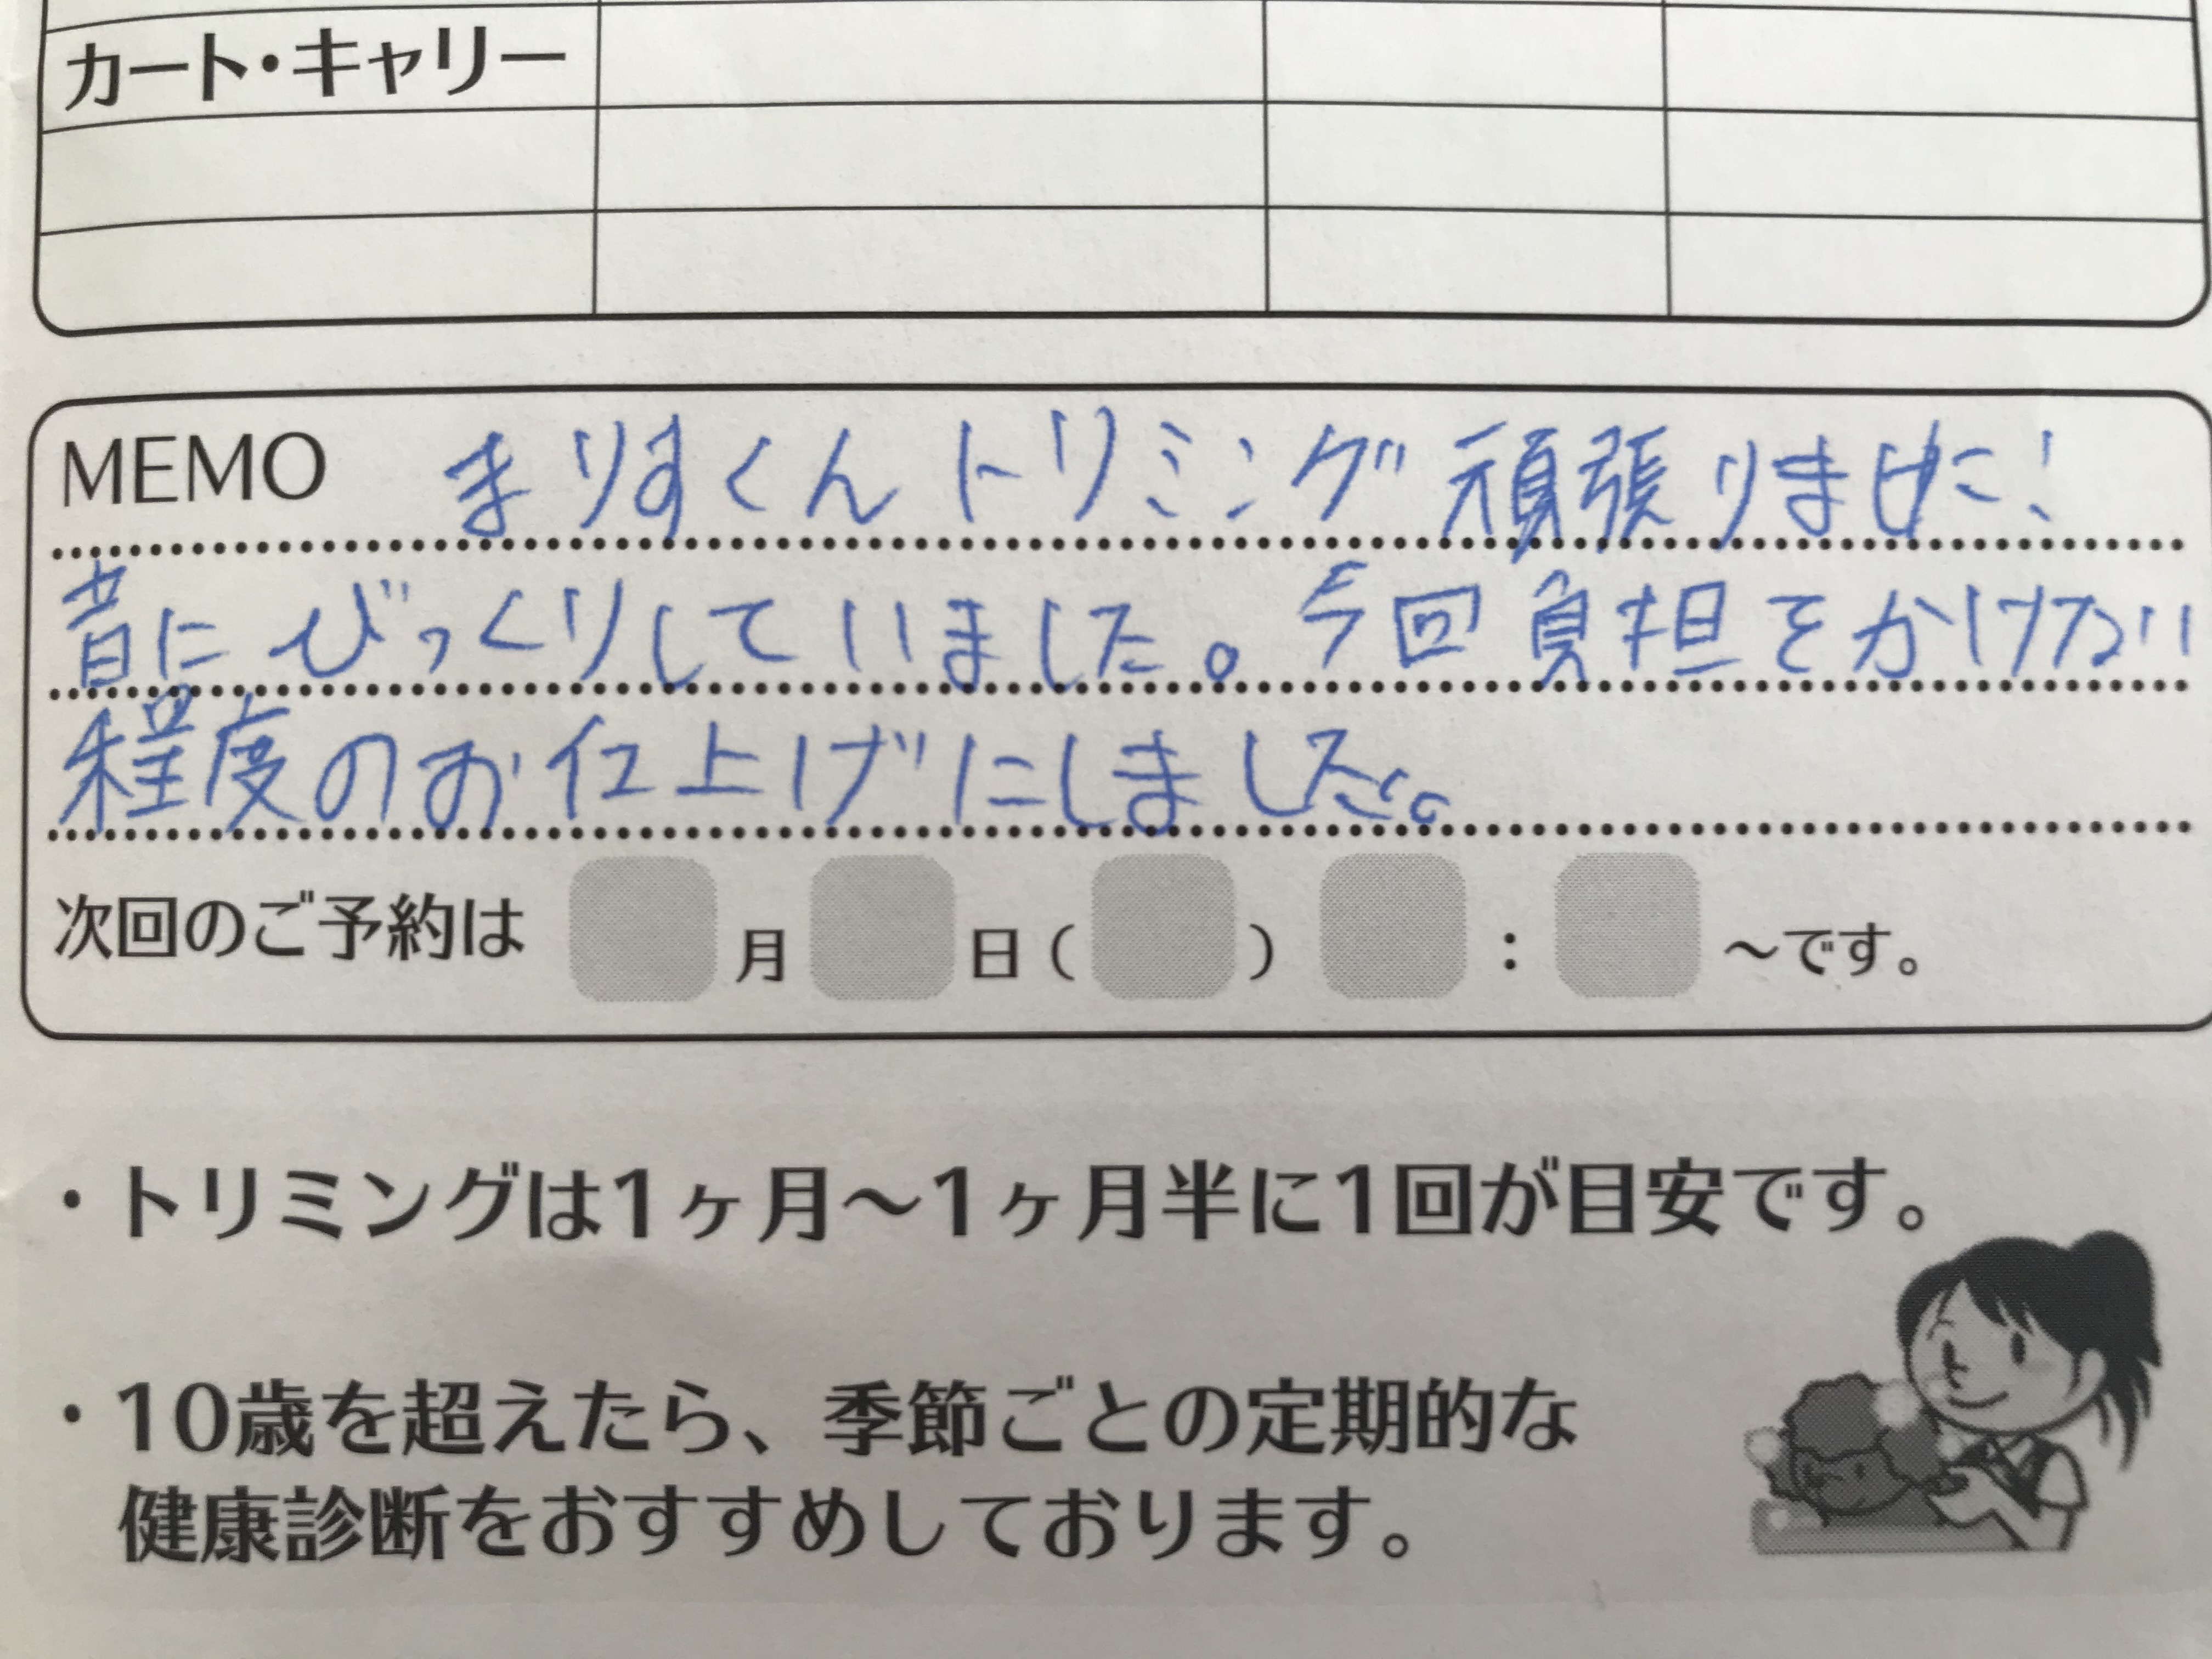 カート・キャリー
MEMO まりすくん トリミング 頑張りました!
音に びっくりしていました。今回 負担をかけない
程度のお仕上げにしました。
次回のご予約は 月 日( ) : ～です。
・トリミングは1ヶ月～1ヶ月半に1回が目安です。
・10歳を超えたら、季節ごとの定期的な
健康診断をおすすめしております。